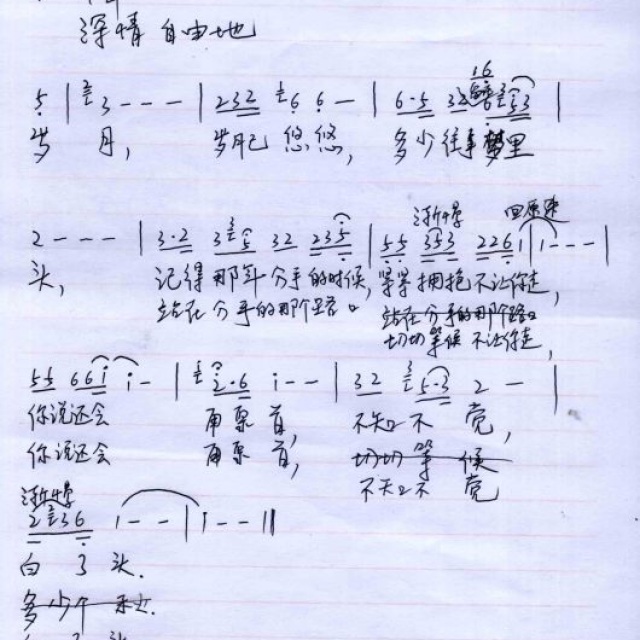 深情 自由地
5 | 3 - - - | 232 6 6 - | 6·5 32 16 3 |
岁 月, 岁月已 悠悠, 多少往事 梦里
渐慢 回原速
2 - - - | 3·2 3 5 32 235 | 55 353 2261 | 1 - - - |
头, 记得那年 分手的时候, 等等拥抱 不让你走,
站在分手的那个路口 站在分手的那个路口
切切等候 不让你走,
55 66i i - | i·6 i - - | 32 5·3 2 - |
你说还会 再聚首, 不知不觉,
你说还会 再聚首, 切切等候
不知不觉
渐慢
2 3 6 1 - - | 1 - - ||
白了头.
多少个
头